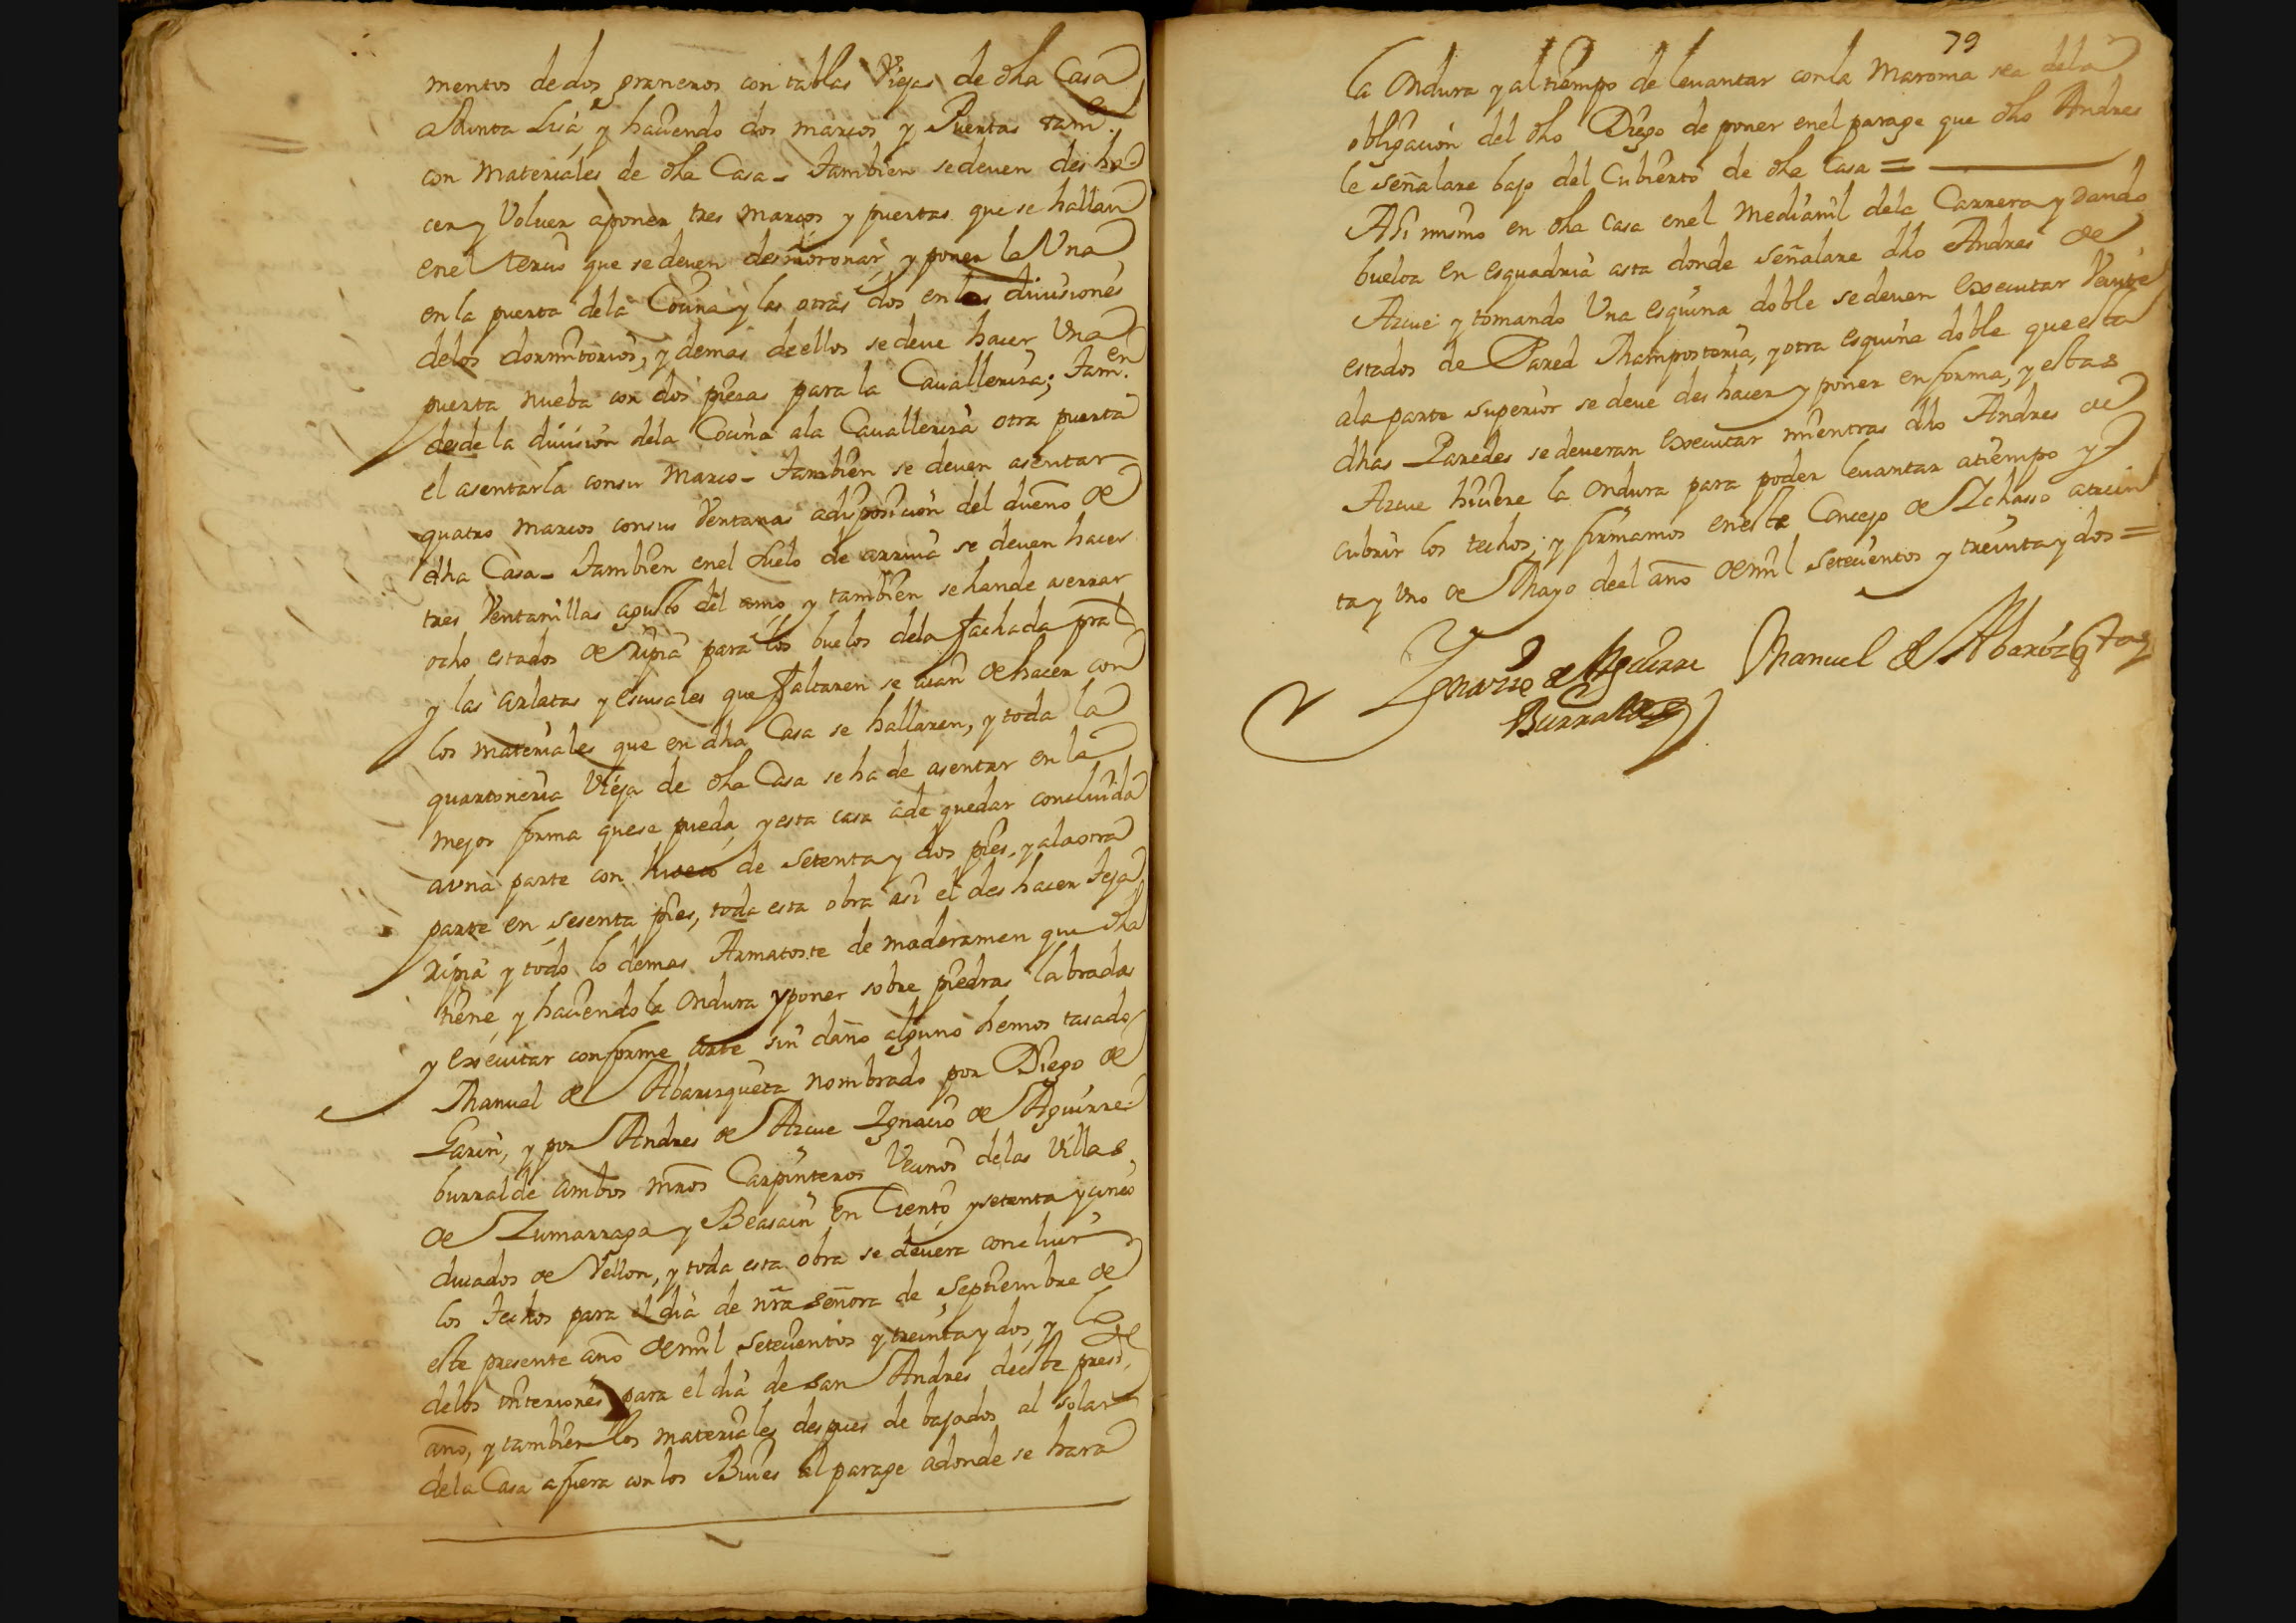 mentos de dos graneros con tablas Viejas de dha Casa
a Junta Lisa y haciendo dos marcos y Puertas tam.en
con Materiales de dha Casa - Tambien se deven desha
cer y Volver a poner tres marcos y puertas que se hallan
en el tercio que se deven desmoronar y poner la Una
en la puerta dela Cocina y las otras dos en las divisiones
delos dormitorios, y demas de ellos se deve hacer Una
puerta nueba con dos piezas para la Cavalleriza; Tam.en
desde la division dela Cocina ala Cavalleriza otra puerta
el asentarla con su Marco - Tambien se deven asentar
quatro marcos con sus Ventanas a disposicion del dueño de
dha Casa - Tambien en el suelo de arriva se deven hacer
tres Ventanillas a gusto del amo, y tambien se han de aserrar
ocho estados de ripia para los buelos dela fachada pral
y las arlatas y escusales que faltaren se aian de hacer con
los materiales que en dha Casa se hallaren, y toda la
quartoneria Vieja de dha Casa se ha de asentar en la
mejor forma que se pueda, y esta casa ade quedar concluida
a una parte con hueco de setenta y dos pies, y ala otra
parte en sesenta pies, toda esta obra asi el des hacer teja
ripia y todo lo demas Armatoste de maderamen que dha
tiene, y haciendo la ondura y poner sobre piedras labradas
y executar conforme arte sin daño alguno hemos tasado
Manuel de Abarizqueta nombrado por Diego de
Garin, y por Andres de Azcue Ignacio de Aguirre
burralde ambos mros Carpinteros Vecinos delas Villas
de Zumarraga y Beasain en Ciento y setenta y cinco
ducados de Vellon, y toda esta obra se devera concluir
los techos para el dia de nra señora de Septiembre de
este presente año de mil setecientos y treinta y dos, y lo
delos interiores para el dia de san Andres de este preste
año, y tambien los materiales despues de bajados al solar
dela Casa afuera con los Bues al parage adonde se hara
79
la ondura y al tiempo de levantar con la Maroma sea dela
obligacion del dho Diego de poner en el parage que dho Andres
le señalare bajo del Cubierto de dha Casa =
Asi mismo en dha casa en el Medianil dela Carrera y dando
buelta en esquadria asta donde señalare dho Andres de
Azcue y tomando Una esquina doble se deven executar Veinte
estados de Pared Mamposteria, y otra esquina doble que esta
ala parte superior se deve des hacer y poner en forma, y estas
dhas Paredes se deveran executar mientras dho Andres de
Azcue hiciere la ondura para poder levantar atiempo y
cubrir los techos, y firmamos en este Concejo de Ichasso a trein
ta y uno de Mayo de el año de mil setecientos y treinta y dos =
Ignacio de Aguirre Manuel de Abarizqta
Burralde